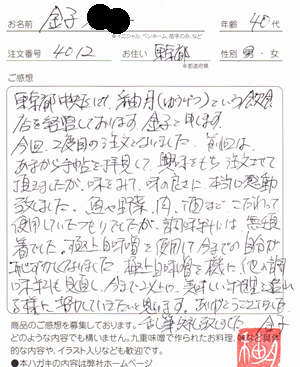 お名前 金子
※イニシャル、ペンネーム、苗字のみ、など
年齢 40代
注文番号 4012
お住い 東京都
※都道府県
性別 男・女
ご感想
東京都 にて、秞月(ゆうげつ)という飲食
店を経営しております。金子と申します。
今回、2度目の注文となりました。前回は、
あまから手帖を拝見して、興味をもち注文させて
頂きましたが、味をみて、味の良さに本当に感動
致しました。魚や野菜、肉、酒など こだわって
使用していたつもりでしたが、調味料には無頓
着でした。極上白味噌を使用して今までの自分が
恥ずかしくなりました。極上白味噌を機に、他の調
味料も見直し、今まで以上の、美味しい料理を造れ
る様に努力していきたいと思います。ありがとうございました。
乱筆失礼致しました 金子
商品のご感想を募集しております。
どのような内容でも構いません。九重味噌で作られたお料理、味など具体
的な内容や、イラスト入りなども歓迎です。
※本ハガキの内容は弊社ホームページ